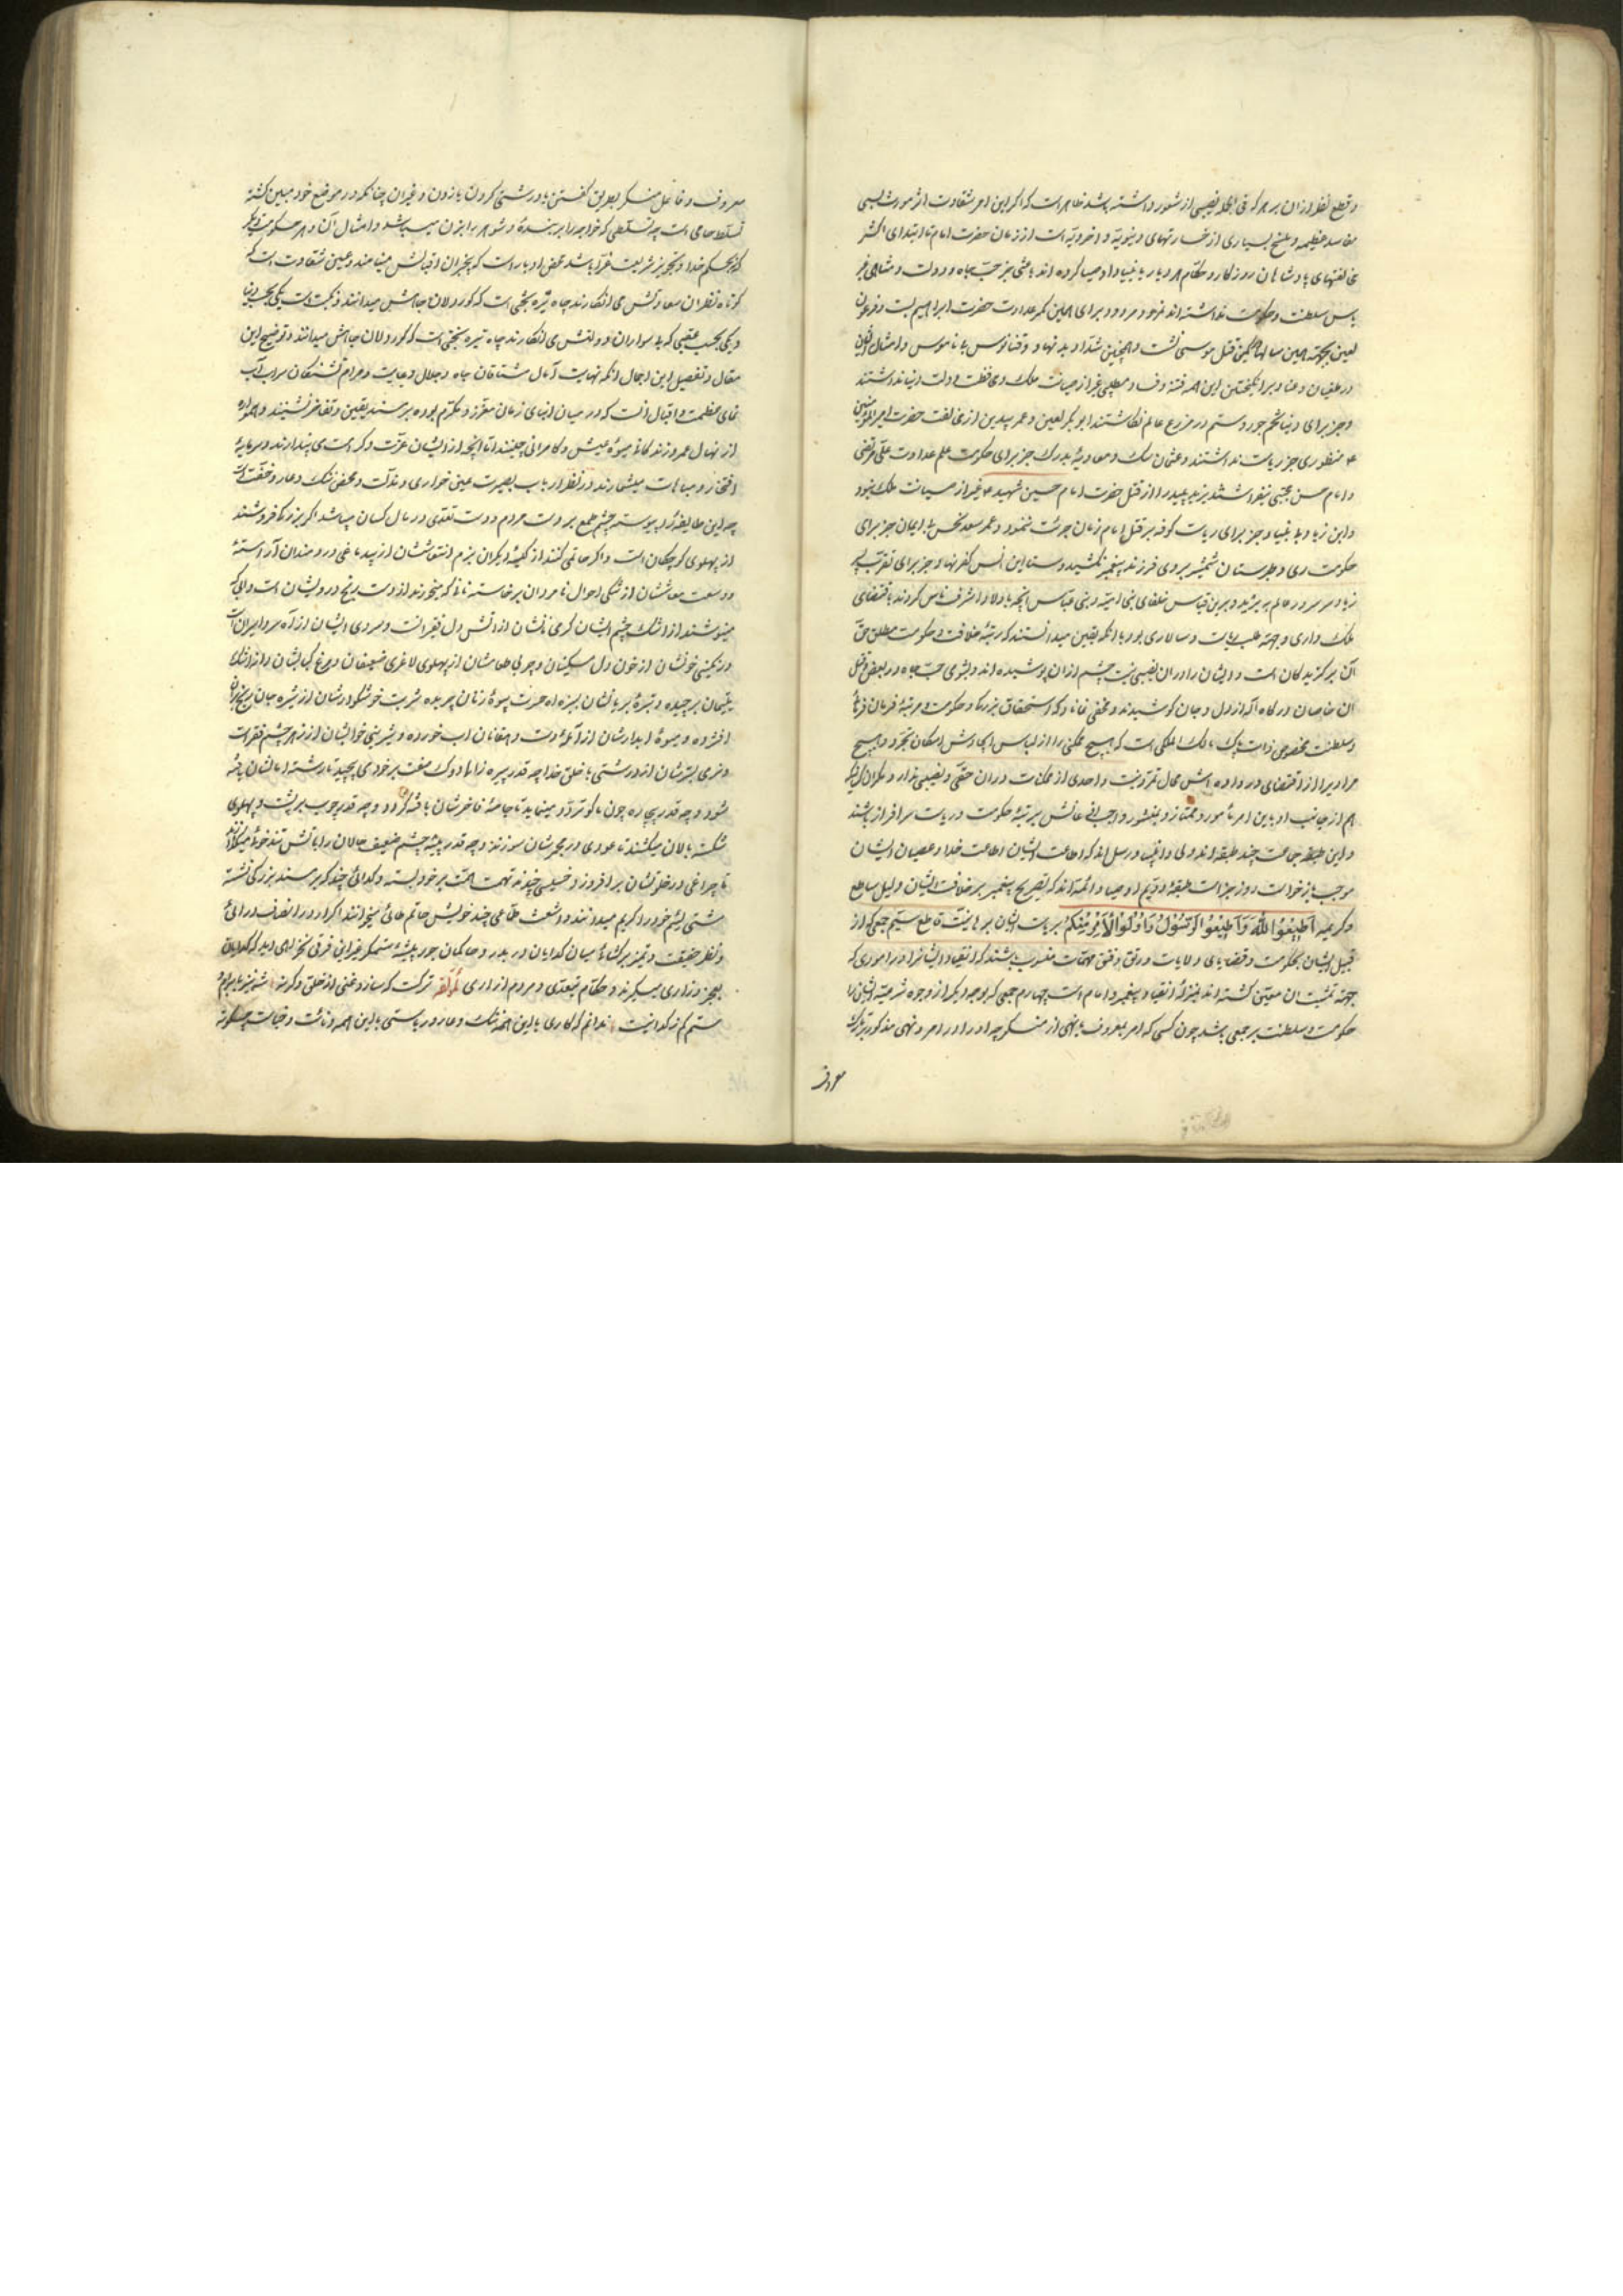 و قطع نظر ازان بر هر که فی الجمله نصیبی از شعور داشته باشد ظاهر است که اکثر این امر شقاوت اثر مورث بسی
مفاسد عظیمه و منتج بسیاری از خسارتهای دنیویّه و اخرویّه است از زمان حضرت امام تا ابتدای اکثر
مخالفتهای پادشاهان روزگار و حکّام هر دیار با انبیا و اوصیا کرده اند باعثی بجز حبّ جاه و دولت و منشأی غیر
پاس سلطنت و حکومت نداشته اند نمرود مردود برای همین کمر عداوت حضرت ابراهیم بست و فرعون
لعین بجهة همین سالها در کمین قتل موسی نشست و همچنین شدّاد بد نهاد و دقیانوس بی ناموس و امثال ایشان
در طغیان و عناد برانگیختن این همه فتنه و فساد مطلبی غیر از صیانت ملک و محافظت دولت دنیا نداشتند
و جز برای دنیا تخم جور و ستم در مزرع عالم نکاشتند ابو بکر لعین و عمر بیدین از مخالفت حضرت امیر المؤمنین
ع منظوری جز ریاست نداشتند و عثمان سگ و معاویهٔ بدرگ جز برای حکومت علم عداوت علی مرتضی
و امام حسن مجتبی نیفراشتند یزید پلید را از قتل حضرت امام حسین شهید ع غیر از صیانت ملک نبود
و ابن زیاد بد بنیاد جز برای ریاست کوفه بر قتل امام زمان جرئت ننمود و عمر سعد نحس بی ایمان جز برای
حکومت ری و طبرستان شمشیر بروی فرزند پیغمبر نکشید و سنان ابن انس کفر نهاد جز برای تقرّب پسر
زیاد سر سرور عالم نبرید و برین قیاس خلفای بنی امیّه و بنی عبّاس آنچه با اولاد اشرف ناس کردند باقتضای
ملک داری و بجهة طلب ریاست و سالاری بود با آنکه بیقین میدانستند که رتبهٔ خلافت و حکومت مطلق حقّ
آن برگزیدگان است و ایشان را در آن نصیبی نیست چشم ازان پوشیده اند و بشومی حبّ جاه در بعض و قتل
آن خاصان درگاه اله از دل و جان کوشیدند و مخفی نماند که استحقاق بزرگی و حکومت و مرتبهٔ فرمان فرمائی
و سلطنت مخصوص ذات پاک مالک الملکی است که هیچ ممکنی را از لباس ایجادش امکان تجرّد و هیچ
مرادی را از اقتضای در اراده اش مجال تمرّد نیست و احدی از ممکنات در آن حقّی و نصیبی ندارد مگر آن که
هم از جانب او باین امر مأمور و ممتاز و بمنشور واجب الاذعانش بر رتبهٔ حکومت و ریاست سرافراز باشند
و این طبقه جماعت چند طبقه اند اولی انبیا و رسل اند که اطاعت ایشان اطاعت خدا و عصیان ایشان
موجب بازخواست روز جزا است طبقهٔ دویّم اوصیا و ائمّه اند که بتصریح پیغمبر بر خلافت ایشان دلیل ساطع
و کریمهٔ أَطِيعُوا اللَّهَ وَأَطِيعُوا الرَّسُولَ وَأُولُوا الْأَمْرِ مِنْكُمْ بر ریاست ایشان برهانیست قاطع سیّم جمعی که از
قبل ایشان بحکومت و قضایای ولایات و رتق و فتق مهمّات منصوب باشند که انقیاد ایشان در اموری که
بجهة تمشیت آن معیّن گشته اند بمنزلهٔ انقیاد پیغمبر و امام است چهارم جمعی که بوجه دیگر از وجوه شرعیّه ایشان را
حکومت و سلطنت بر جمعی باشد چون کسی که امر بمعروف یا نهی از منکر چه او را در امر و نهی مذکور بر تارک
معروف
معروف و فاعل منکر بطریق گفتن یا درشتی کردن یا زدن و غیر آن چنانکه در موضع خود مبیّن گشته
تسلّط خاصی است چه تسلّطی که خواجه را بر بندهٔ و شوهر را بر زن میباشد و امثال آن و هر حکومت دیگر
که نه بحکم خدا و تجویز شریعت غرّا باشد محض ادبار است که بیخبران اقبالش مینامند و عین شقاوت است که
کوتاه نظران سعادتش می انگارند چاه تیره بختی است که کور دلان جاهش میدانند و نکبت است
مقال و تفصیل این اجمال آنکه نهایت آمال مشتاقان جاه و جلال و غایت مرام تشنگان سراب آب
نمای عظمت و اقبال آنست که در میان ابنای زمان معزّز و مکرّم بوده بر مسند یقین و تفاخر نشینند و همواره
از نهال عمر و زندگانی میوهٔ عیش و کامرانی چینند امّا آنچه از ایشان عزّت و کرامت می پندارند و سرمایهٔ
افتخار و مباهات میشمارند در نظر ارباب بصیرت عین خواری و مذلّت و محض ننگ و عار و خفّت است
چه این طایفه را پیوسته چشم طمع بر دست مردم و دست تعدّی در مال کسان میباشد اگر بزرگ فروشند
از پهلوی کوچکان است و اگر حاتمی کنند از کیسهٔ دیگران بزم انتعاششان از بیدماغی دردمندان آراستهٔ
و وسعت معاششان از تنگی احوال نامردان برخاسته نانی که میخورند از دست رنج درویشان است و آبی که
مینوشند از اشک چشم ایشان گرمی نانشان از آتش دل فقیرانست و سردی آبشان از آه سرد اسیران است
و رنگینی خونشان از خون دل مسکینان و چربی طعامشان از پهلوی لاغری ضعیفان و مرغ کبابشان دانه از اشک
یتیمان برچیده و برّهٔ بریانشان سبزه از حسرت بیوهٔ زنان چریده شربت خوشگوارشان از شیره جان رنجبران
افشرده و میوهٔ آبدارشان از آبلهٔ دست دهقانان آب خورده و شیرینی خوابشان از زهر چشم فقر است
و نرمی بسترشان از درشتی با خلق خدا چه قدر پیره زالها دوک صفت بر خود می پیچد تا رشتهٔ آمالشان پنبه
شود و چه قدر بیچاره چون ماکو تردّد مینماید تا جامهٔ فاخرشان بافته گردد و چه قدر چوب بر پشت و پهلوی
شکسته بالان میشکند تا عودی در مجمرشان سوزند و چه قدر پیه چشم ضعیف حالان را بآتش تند خوئی میگدازند
تا چراغی در خلوتشان برافروزد خسیسی چند نه تهمت همّت بر خود بسته و گدائی چند که بر مسند بزرگی نشسته
مشتی لئیم خود را کریم میدانند و اشعث طمّاعی چند خویش حاتم طائی میخوانند اگر از در انصاف درائی
و نظر حقیقت و تمیز برگشائی میان گدایان دربدر و حاکمان جور پیشهٔ ستمگر غیر این فرقی نخواهی دید که گدایان
بعجز و زاری میگیرند و حکّام بتعدّی و مردم آزاری لمؤلّفه ترکست که ساز و غنی از خلق و گرنه شه نیز بابرام
ستم کم ز گدا نیست ندانم که کاری با این همه ننگ و عار و ریاستی با این همه دنائت و خباثت چگونه